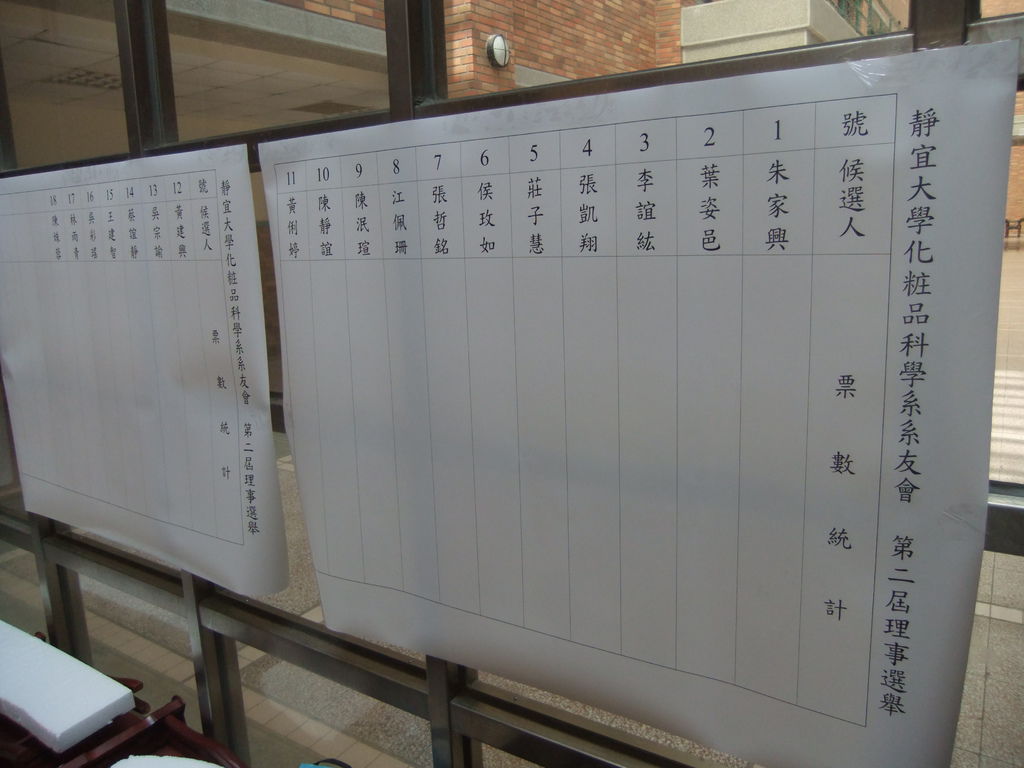 靜宜大學化粧品科學系系友會 第二屆理事選舉
號 候選人 票數統計
1 朱家興
2 葉姿邑
3 李誼紘
4 張凱翔
5 莊子慧
6 侯玫如
7 張哲銘
8 江佩珊
9 陳泯瑄
10 陳靜誼
11 黃俐婷
靜宜大學化粧品科學系系友會 第二屆理事選舉
號 候選人 票數統計
12 黃建興
13 吳宗諭
14 蔡誼靜
15 王建智
16 吳彩瑶
17 林雨青
18 陳姝蓉